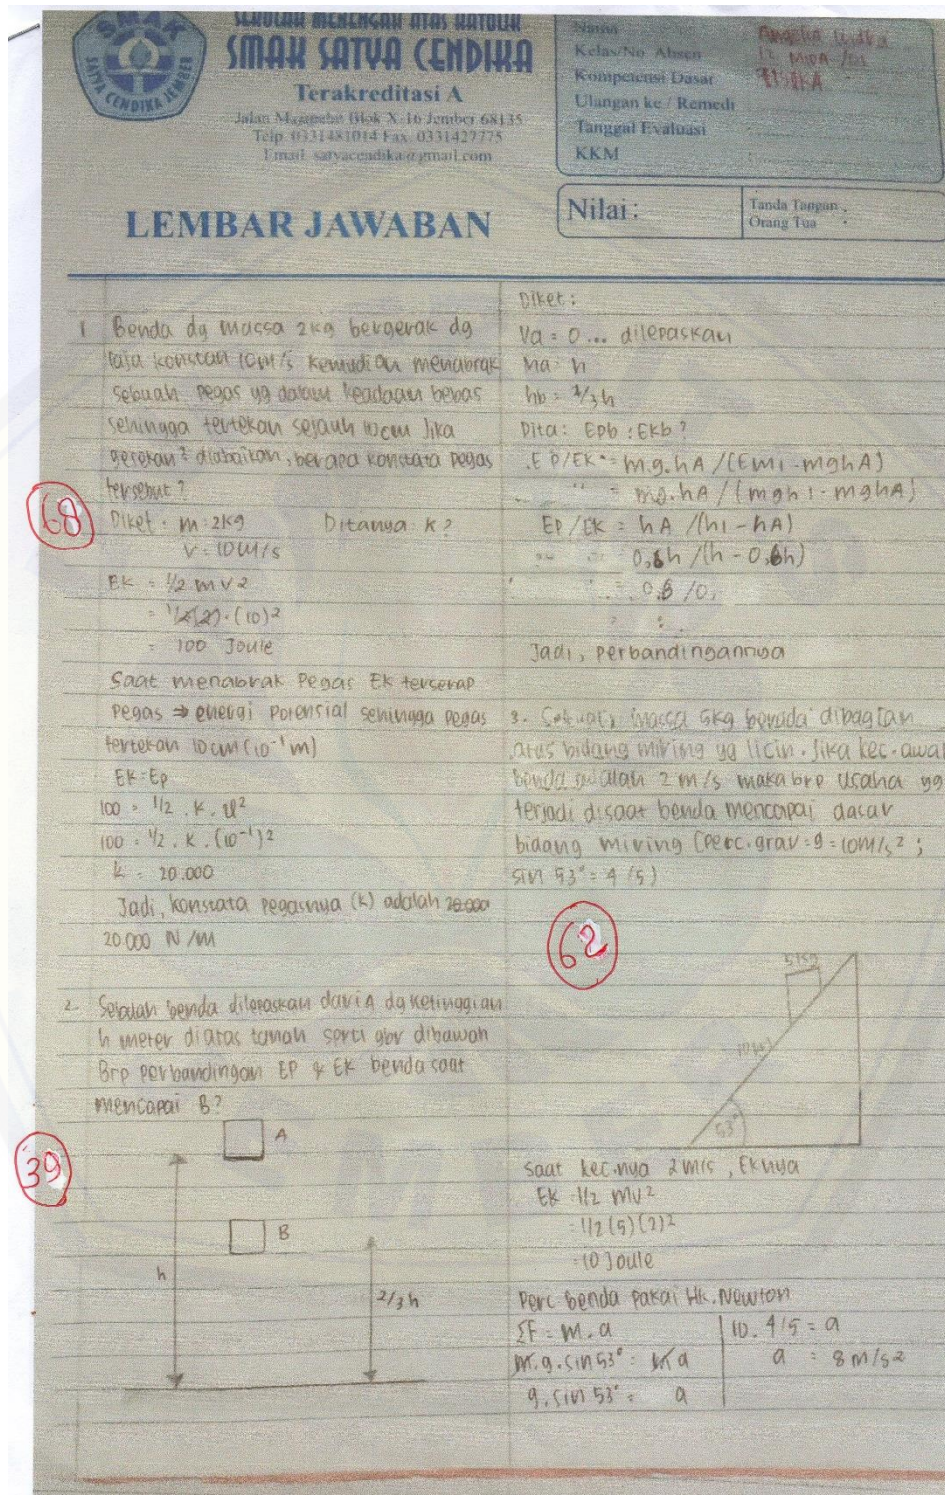 SEKOLAH MENENGAH ATAS KATOLIK
SMAK SATYA CENDIKA
Terakreditasi A
Jalan Blok X-16 Jember 68135
Telp. 0331481014 Fax. 0331427775
Email. satyacendika@gmail.com
SMAK
SATYA CENDIKA JEMBER
Nama
Kelas/No. Absen
Kompetensi Dasar
FISIKA
Ulangan ke / Remedi
Tanggal Evaluasi
KKM
LEMBAR JAWABAN
Nilai :
Tanda Tangan
Orang Tua :
1 Benda dg massa 2kg bergerak dg
laju konstan 10m/s kemudian menabrak
sebuah pegas yg dalam keadaan bebas
sehingga tertekan sejauh 10cm Jika
gesekan² diabaikan, berapa konstata pegas
tersebut?
68
Diket : m : 2kg Ditanya : k ?
v = 10 m/s
EK = 1/2 m v 2
= 1/2(2).(10)2
= 100 Joule
Saat menabrak Pegas Ek terserap
pegas ⇒ energi potensial sehingga pegas
tertekan 10 cm (10-1 m)
EK = Ep
100 = 1/2 . k .
100 = 1/2 . k . (10-1)2
k = 20.000
Jadi, konstata pegasnya (k) adalah 20.000
20.000 N/m
2. Sebuah benda dilepaskan dari A dg ketinggian
h meter diatas tanah sprti gbr dibawah
Brp perbandingan EP & EK benda saat
mencapai B?
39
A
B
h
2/3 h
Diket :
Va = 0 ... dilepaskan
ha = h
hb = 2/3 h
Dita : Epb : Ekb ?
EP/EK = m.g.hA / (Em1 - mghA)
" = mg.hA / (mgh1 - mghA)
EP/EK = hA / (h1 - hA)
= 0,6h / (h - 0,6h)
= 0,6 / 0,
= :
Jadi, perbandingannya
3. massa 5kg berada dibagian
atas bidang miring yg licin. Jika kec. awal
benda adalah 2 m/s maka brp usaha yg
terjadi disaat benda mencapai dasar
bidang miring (perc. grav = g = 10m/s2 ;
sin 53° = 4/5)
62
5 kg
53°
saat kec.nya 2 m/s, EKnya
EK = 1/2 mv2
= 1/2 (5) (2)2
= 10 Joule
Perc benda pakai Hk. Newton
ΣF = m.a
m.g.sin 53° = m a
g. sin 53° = a
10. 4/5 = a
a = 8 m/s2